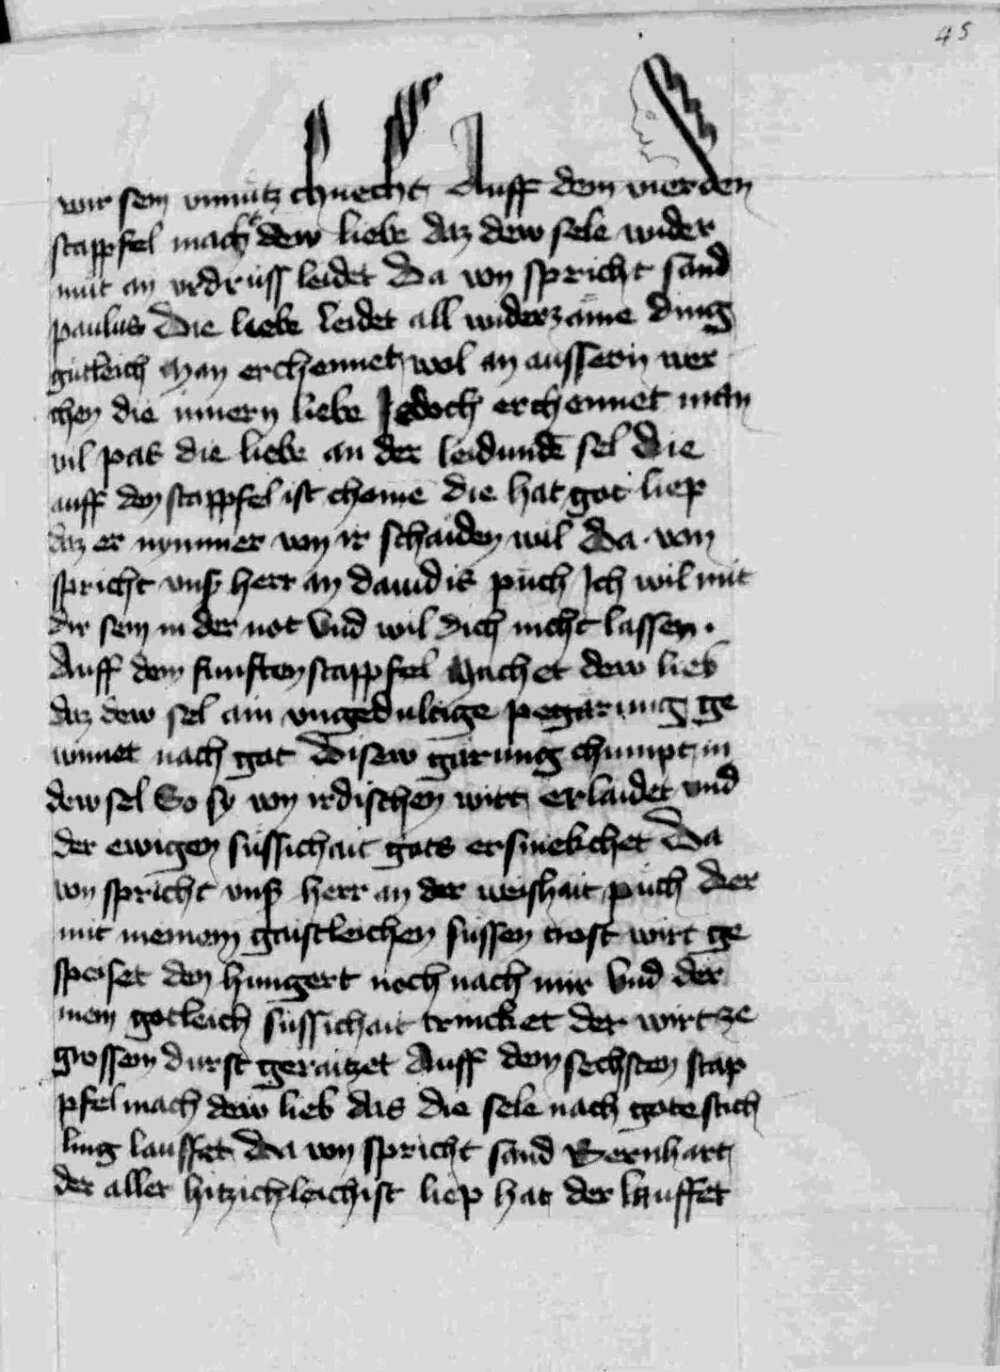 45
wir sein vnnutz chnecht Auff dem vierden
stappfel macht dew liebe daz dew sele wider
mut an vrdruss leidet Da von spricht sand
paulus Die liebe leidet all widerzäme ding
gutleich Man erchennet wol an aussern wer
chen die innern liebe Jedoch erchennet man
vil pas die liebe an der leidundē sel Die
auff den stappfel ist chomē die hat got liep
daz er nymmer von ir schaiden wil Da von
spricht vnsß herr an dauidis puch Ich wil mit
dir sein in der not Vnd wil dich nicht lassen.
Auff dem funften stappfel Machet dew lieb
daz dew sel ain vngedultige pegarung ge
winnet nach got Disew garung chumpt in
dew sel So sy von irdischen wirt erlaidet vnd
der ewigen sussichait gots ersmekchet Da
von spricht vnsß herr an der weishait puch Der
mit meinem gaistleichen sussen trost wirt ge
speiset den hungert noch nach mir Vnd der
mein gotleich sussichait trincket der wirt ze
grossem durst geraitzet Auff dem sechsten stap
pfel mach dew lieb das die sele nach gote stich
ling lauffet Da von spricht sand Bernhart
der aller hitzichleichist liep hat der lauffet